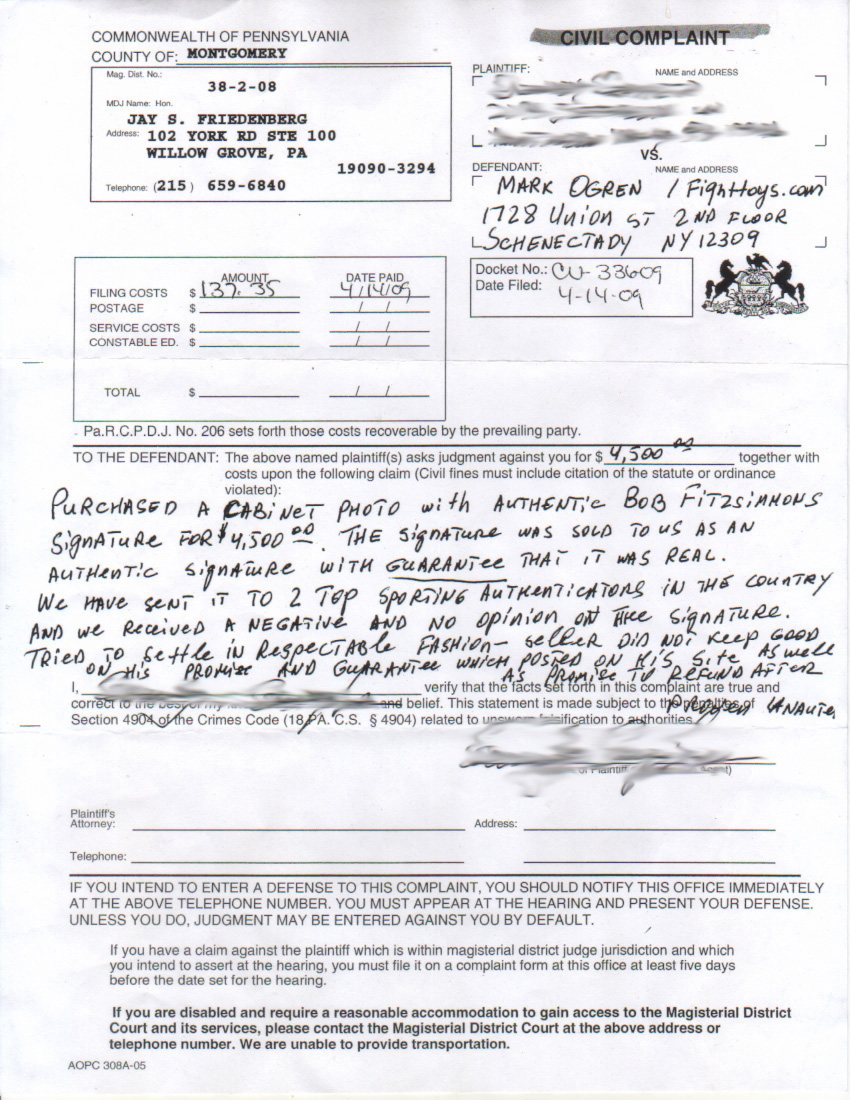 COMMONWEALTH OF PENNSYLVANIA
COUNTY OF: MONTGOMERY
Mag. Dist. No.:
38-2-08
MDJ Name: Hon.
JAY S. FRIEDENBERG
Address: 102 YORK RD STE 100
WILLOW GROVE, PA
19090-3294
Telephone: (215) 659-6840
CIVIL COMPLAINT
PLAINTIFF: NAME and ADDRESS
VS.
DEFENDANT: NAME and ADDRESS
MARK OGREN / Fighttoys.com
1728 Union ST 2ND FLOOR
SCHENECTADY NY 12309
Docket No.: CV-33609
Date Filed: 4-14-09
AMOUNT DATE PAID
FILING COSTS $ 137.35 4/14/09
POSTAGE $ / /
SERVICE COSTS $ / /
CONSTABLE ED. $ / /
TOTAL $ / /
Pa.R.C.P.D.J. No. 206 sets forth those costs recoverable by the prevailing party.
TO THE DEFENDANT: The above named plaintiff(s) asks judgment against you for $ 4,500 00 together with
costs upon the following claim (Civil fines must include citation of the statute or ordinance
violated):
PURCHASED A CABINET PHOTO with AUTHENTIC BOB FITZSIMMONS
SIGNATURE FOR $4,500 00. THE SIGNATURE WAS SOLD TO US AS AN
AUTHENTIC SIGNATURE WITH GUARANTEE THAT IT WAS REAL.
WE HAVE SENT IT TO 2 TOP SPORTING AUTHENTICATORS IN THE COUNTRY
AND WE RECEIVED A NEGATIVE AND NO OPINION ON THE SIGNATURE.
TRIED TO SETTLE IN RESPECTABLE FASHION- SELLER DID NOT KEEP GOOD
ON HIS PROMISE AND GUARANTEE WHICH POSTED ON HIS SITE AS WELL
AS PROMISE TO REFUND AFTER
I, verify that the facts set forth in this complaint are true and
correct to the best of my and belief. This statement is made subject to the penalties of
Section 4904 of the Crimes Code (18 PA. C.S. § 4904) related to unsworn falsification to authorities.
Plaintiff's
Attorney: Address:
Telephone:
IF YOU INTEND TO ENTER A DEFENSE TO THIS COMPLAINT, YOU SHOULD NOTIFY THIS OFFICE IMMEDIATELY
AT THE ABOVE TELEPHONE NUMBER. YOU MUST APPEAR AT THE HEARING AND PRESENT YOUR DEFENSE.
UNLESS YOU DO, JUDGMENT MAY BE ENTERED AGAINST YOU BY DEFAULT.
If you have a claim against the plaintiff which is within magisterial district judge jurisdiction and which
you intend to assert at the hearing, you must file it on a complaint form at this office at least five days
before the date set for the hearing.
If you are disabled and require a reasonable accommodation to gain access to the Magisterial District
Court and its services, please contact the Magisterial District Court at the above address or
telephone number. We are unable to provide transportation.
AOPC 308A-05